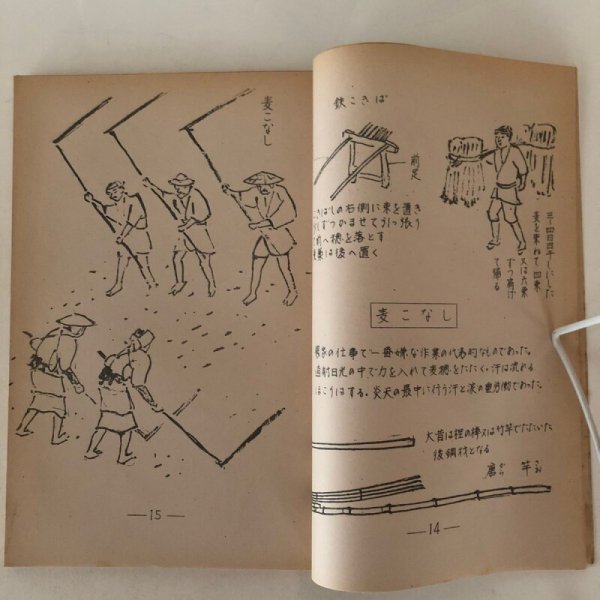 鉄こきば
前足
きばしの右側に束を置き
しずつかませて引っ張り
前へ穂を落とす
麦藁は後へ置く
三〜四日日干しにした
麦を束ねて四束
又は六束
ずつ掲げ
て帰る
麦こなし
農家の仕事で一番嫌な作業の代表的なものであった。
直射日光の中で力を入れて麦穂をたたく。汗は流れる
ほこりはする。炎天の最中に行う汗と涙の重労働であった。
大昔は樫の棒又は竹竿でたたいた
後鋼材となる
唐竿
からさお
—14—
麦こなし
—15—